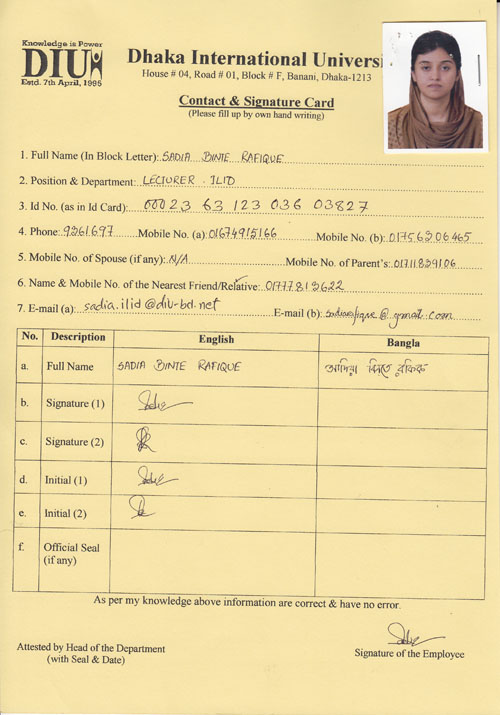 Knowledge is Power
DIU
Estd. 7th April, 1995
Dhaka International Universi
House # 04, Road # 01, Block # F, Banani, Dhaka-1213
Contact & Signature Card
(Please fill up by own hand writing)
1. Full Name (In Block Letter): SADIA BINTE RAFIQUE
2. Position & Department: LECTURER . ILID
3. Id No. (as in Id Card): 000 23 63 123 036 03827
4. Phone: 9361697 Mobile No. (a): 01674915166 Mobile No. (b): 01756306465
5. Mobile No. of Spouse (if any): N/A Mobile No. of Parent's: 01711839106
6. Name & Mobile No. of the Nearest Friend/Relative: 01777813622
7. E-mail (a): sadia.ilid@diu-bd.net E-mail (b): @gmail.com
No. Description English Bangla
a. Full Name SADIA BINTE RAFIQUE সাদিয়া বিনতে রফিক
b. Signature (1)
c. Signature (2)
d. Initial (1)
e. Initial (2)
f. Official Seal
(if any)
As per my knowledge above information are correct & have no error.
Attested by Head of the Department
(with Seal & Date)
Signature of the Employee